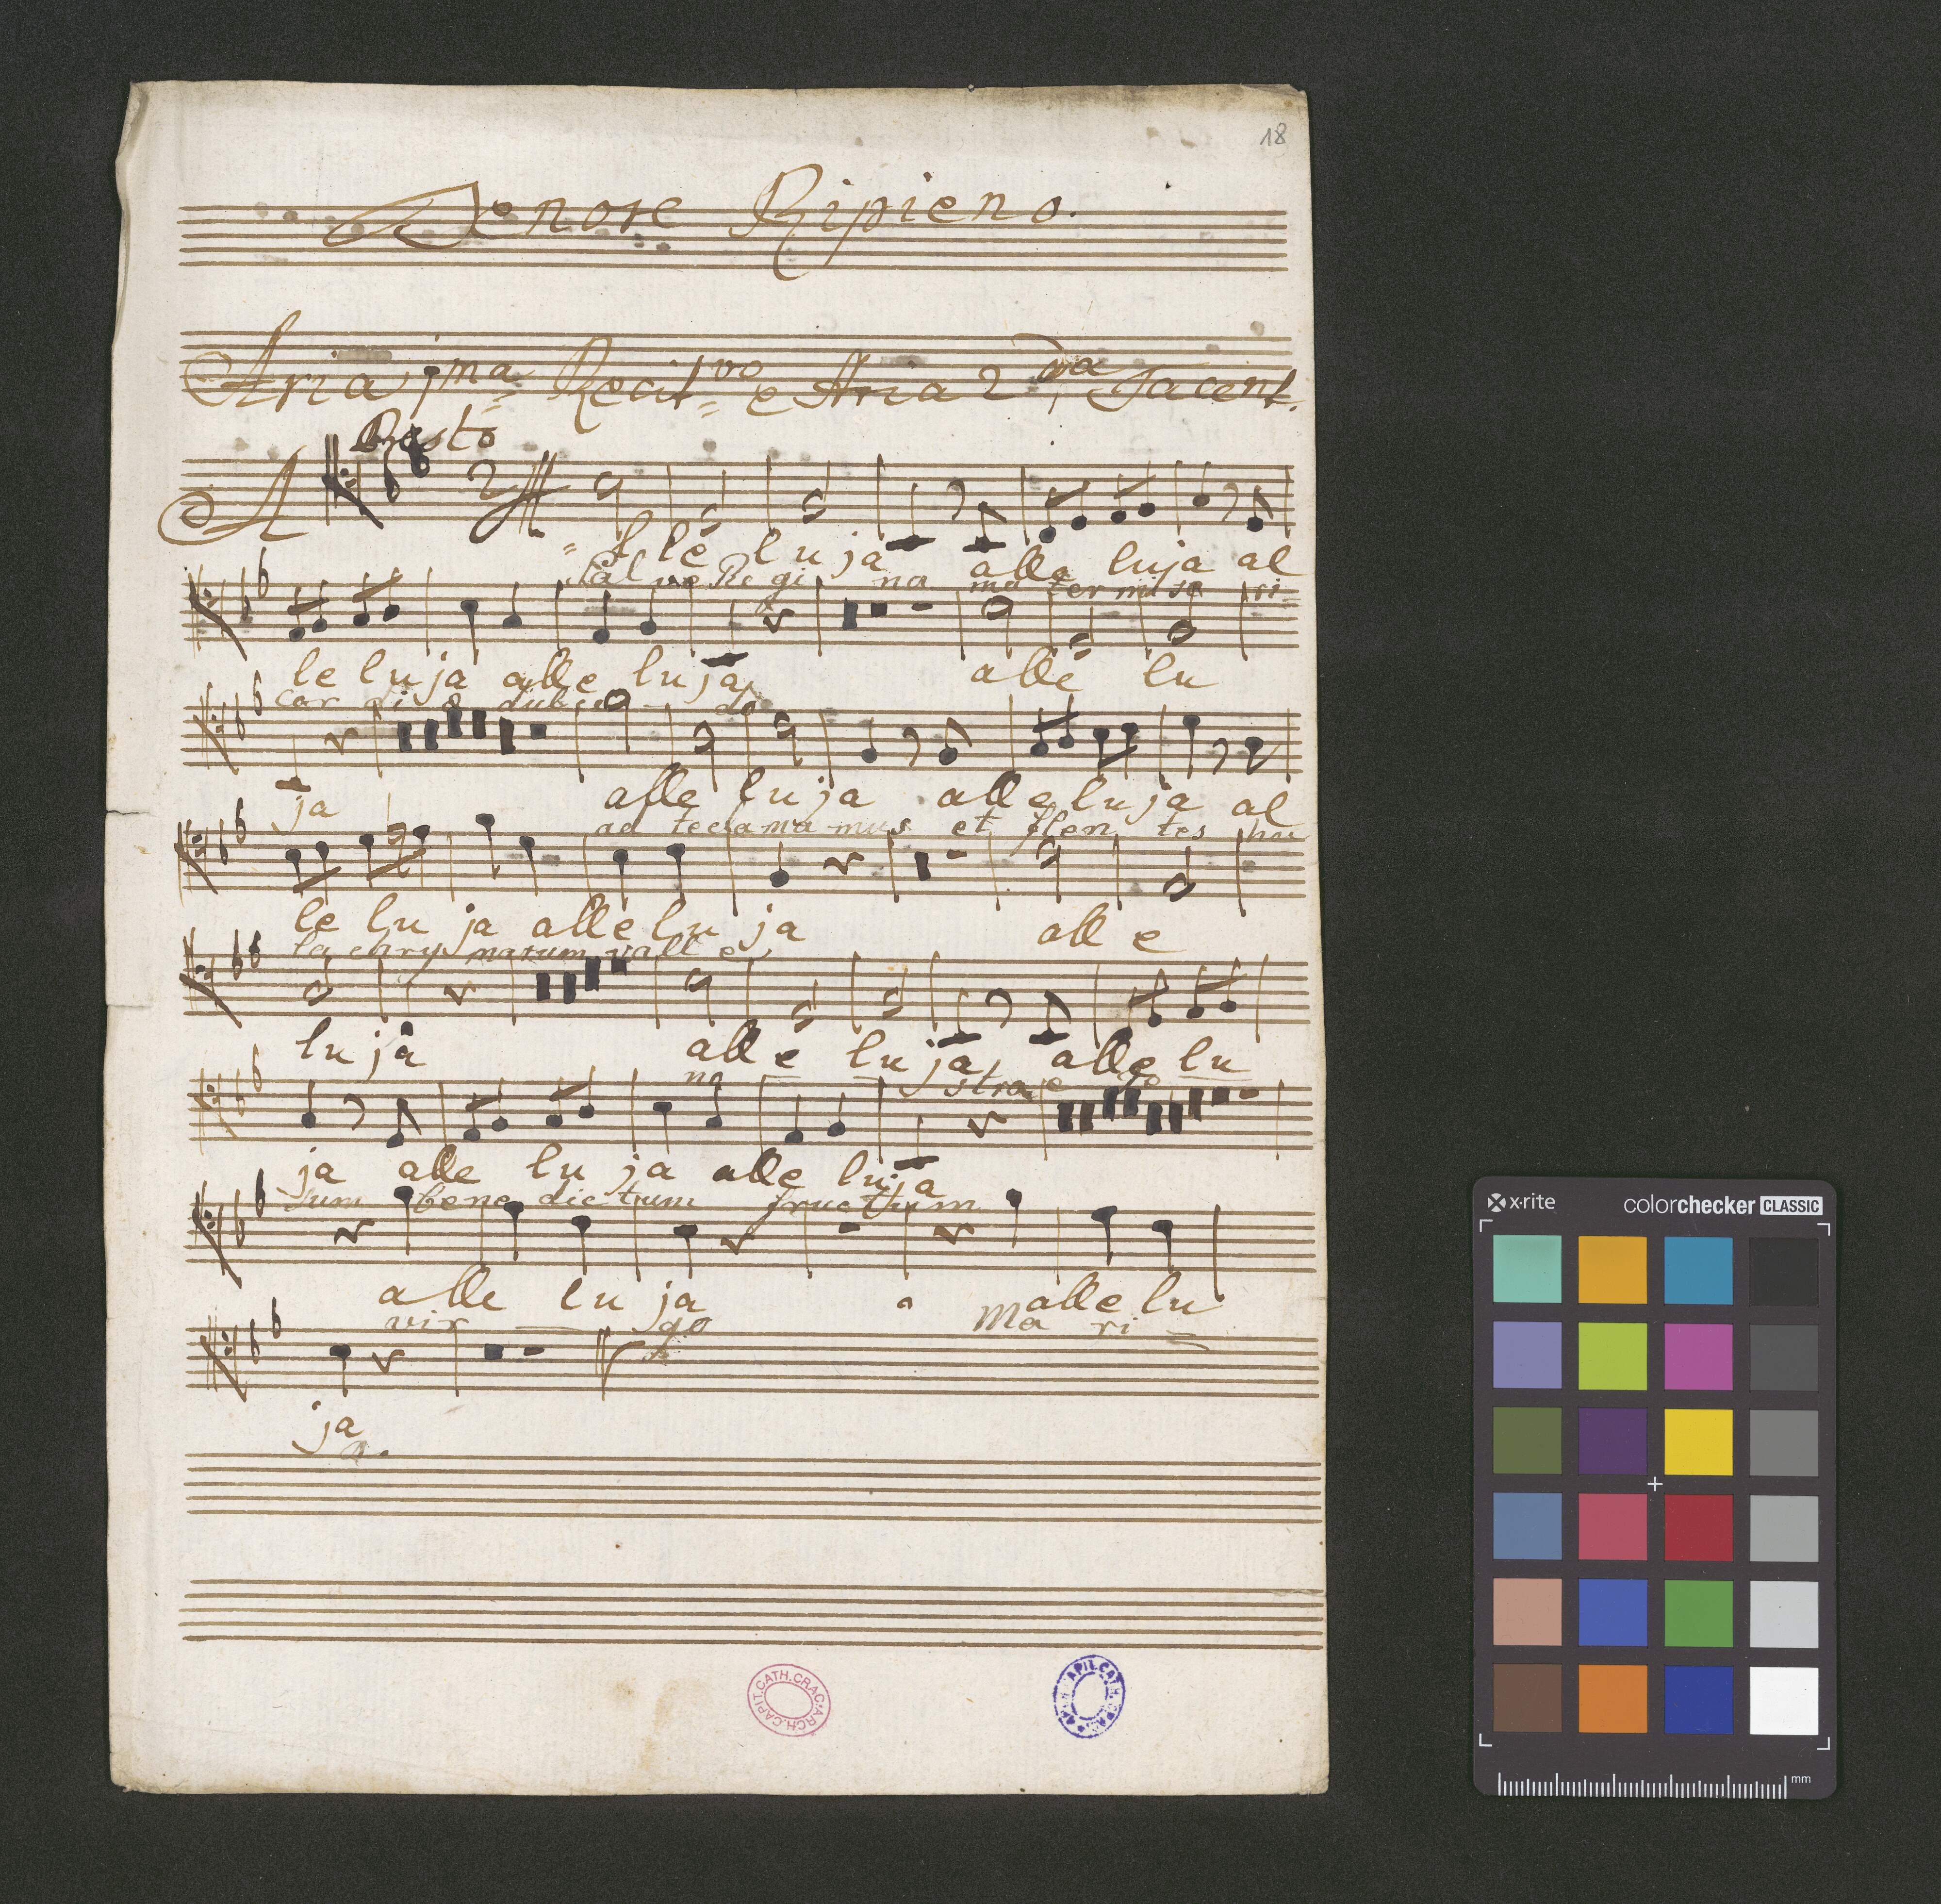 18
Tenore Ripieno.
Aria jma Recitvo e Aria 2da Tacent.
A
lle luja alle luja al
Salve Regi na ma ter mise ri
le luja alle luja alle lu
cor di æ dulce do
ja alle luja alleluja al
ad te clamamus et flen tes hac
le lu ja allelu ja all e
lachry marum vall e
lu ja all e luja alle lu
no stra
ja alle lu ja alle luja
tum bene dictum fructum
alle lu ja alle lu
vir go Ma ri
ja
a.
ARCH.CAPIT.CATH.CRAC.
x·rite colorchecker CLASSIC
mm